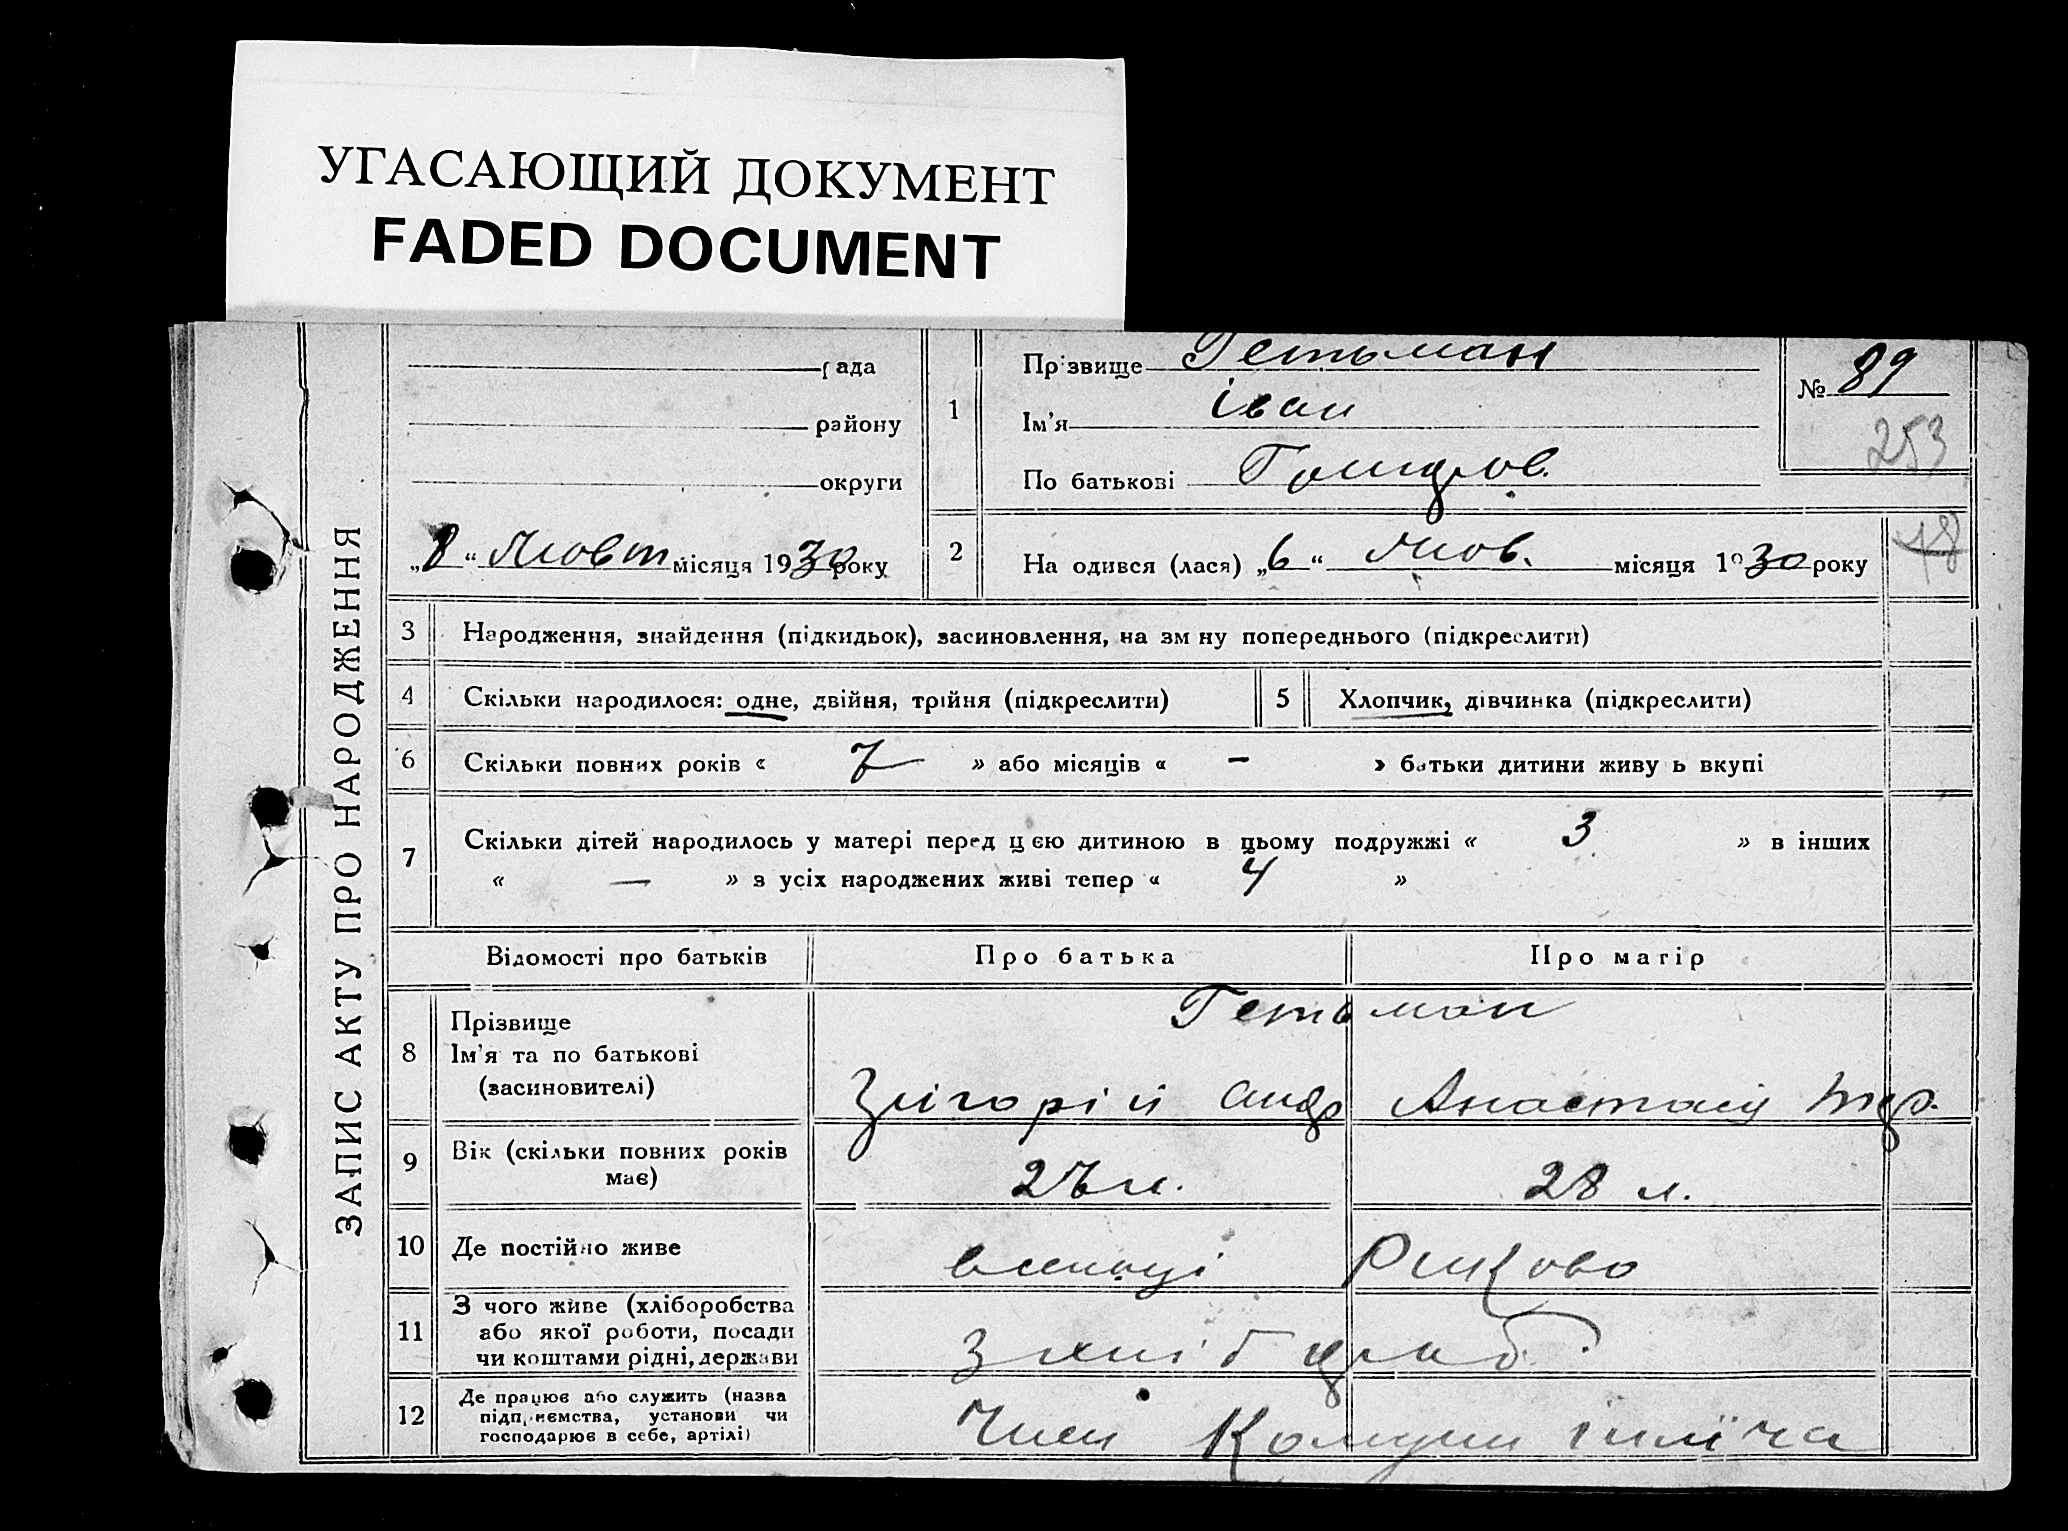 УГАСАЮЩИЙ ДОКУМЕНТ
FADED DOCUMENT
ЗАПИС АКТУ ПРО НАРОДЖЕННЯ
рада
району
округи
„8“ Жовт місяця 1930 року
1
Прізвище Гетьман
Ім'я Іван
По батькові
№ 89
253
2
На одився (лася) „6“ Жов. місяця 1930 року
18
3 Народження, знайдення (підкидьок), засиновлення, на зм ну попереднього (підкреслити)
4 Скільки народилося: одне, двійня, трійня (підкреслити)
5 Хлопчик, дівчинка (підкреслити)
6 Скільки повних років « 7 » або місяців « - » батьки дитини живу ь вкупі
7 Скільки дітей народилось у матері перед цією дитиною в цьому подружжі « 3 » в інших
« — » з усіх народжених живі тепер « 4 »
Відомості про батьків
Про батька
Про матір
8
Прізвище
Ім'я та по батькові
(засиновителі)
Гетьман
Григорій Андр
Анастасія
9 Вік (скільки повних років
має)
27 л.
28 л.
10 Де постійно живе
Риково
11
З чого живе (хліборобства
або якої роботи, посади
чи коштами рідні, держави
з хліб
12
Де працює або служить (назва
підприємства, установи чи
господарює в себе, артілі)
Член Комуни Ілліча